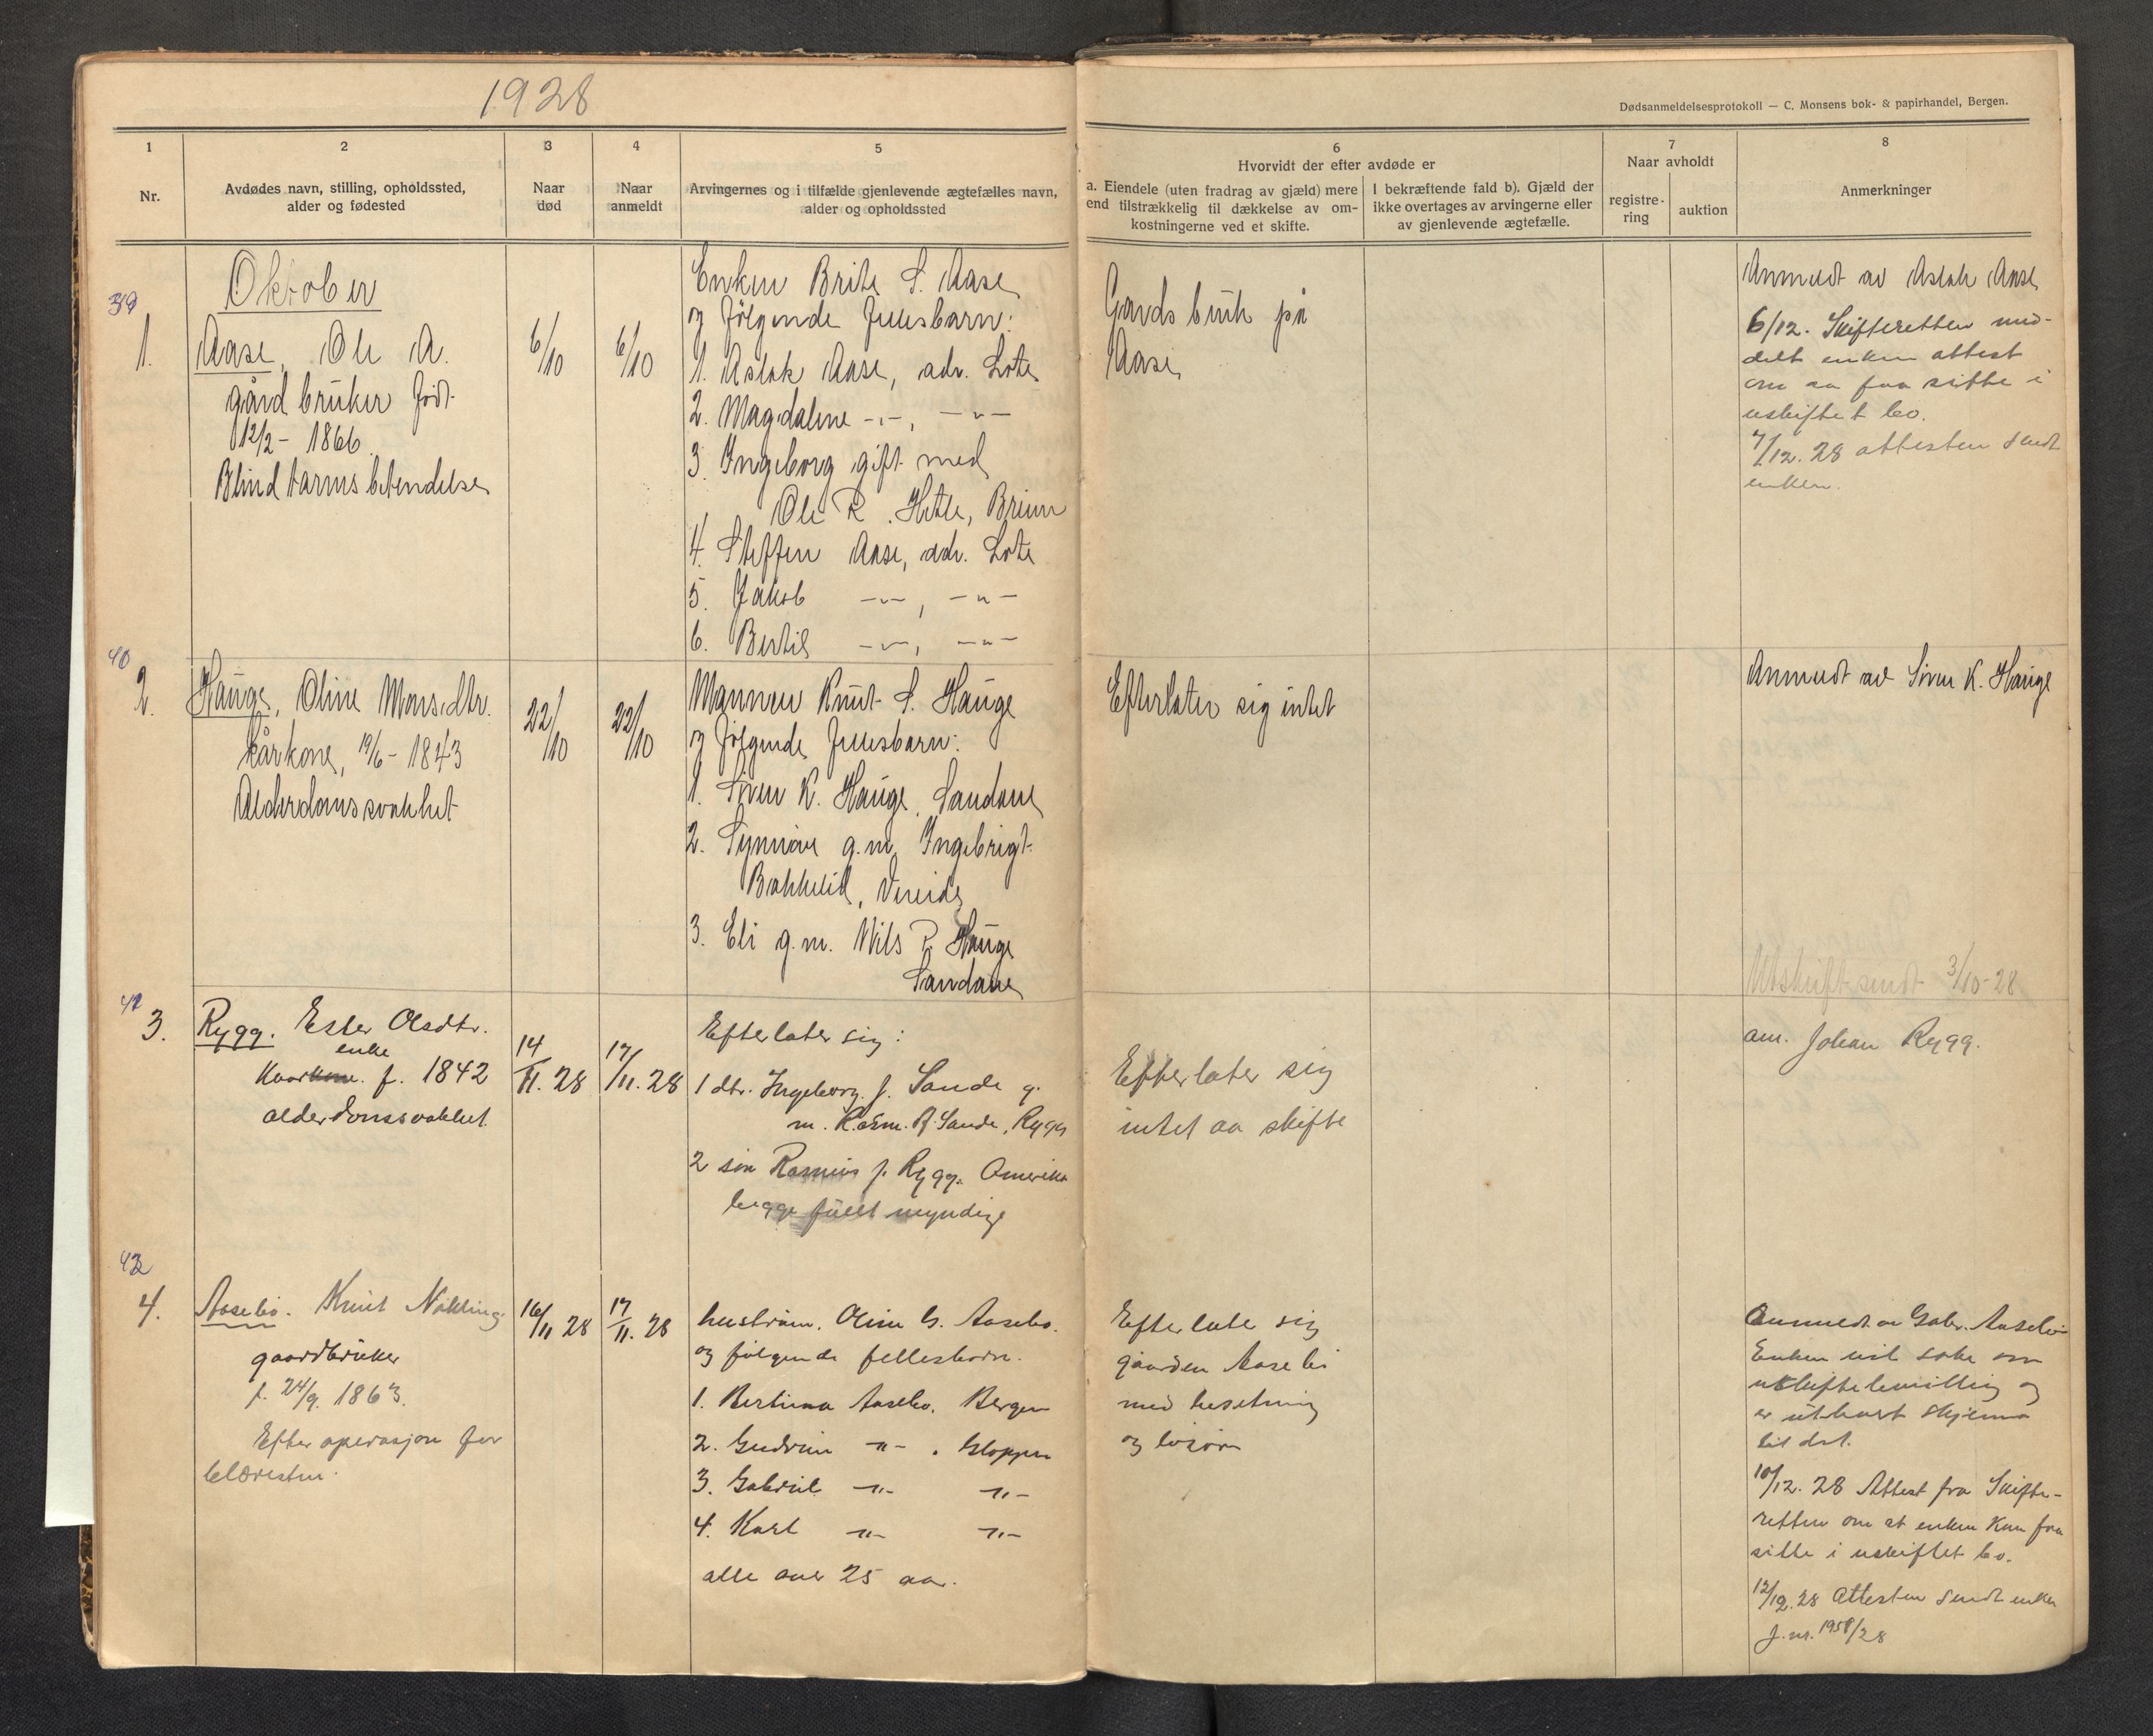 1928
Dødsanmeldelsesprotokoll — C. Monsens bok- & papirhandel, Bergen.
1
2
3
4
5
6
7
8
Nr.
Avdødes navn, stilling, opholdssted,
alder og fødested
Naar
død
Naar
anmeldt
Arvingernes og i tilfælde gjenlevende ægtefælles navn,
alder og opholdssted
Hvorvidt der efter avdøde er
a. Eiendele (uten fradrag av gjæld) mere
end tilstrækkelig til dækkelse av om-
kostningerne ved et skifte.
I bekræftende fald b). Gjæld der
ikke overtages av arvingerne eller
av gjenlevende ægtefælle.
Naar avholdt
registre-
ring
auktion
Anmerkninger
Oktober
39
1.
Aase, Ole A.
gårdbruker født
12/2 - 1866
Blindtarmsbetendelse
6/10
6/10
Enken Brite S. Aase
og følgende fellesbarn:
1. Aslak Aase, adr. Lote
2. Magdalene -"-, -"-
3. Ingeborg gift med
Ole R. Hetle, Breim
4. Steffen Aase, adr. Lote
5. Jakob -"-, -"-
6. Bertil -"-, -"-
Gardsbruk på
Aase
Anmeldt av Aslak Aase
6/12. Skifteretten med-
delt enken attest
om aa faa sitte i
uskiftet bo.
7/12. 28 attesten sendt
enken.
40
2.
Hauge, Oline Monsdtr.
kårkone, 19/6 - 1843
Alderdomssvakhet
22/10
22/10
Mannen Knut S. Hauge
og følgende fellesbarn:
1. Siver K. Hauge, Sandane
2. Synnöve g.m. Ingebrigt
Bakkelid, Vereide
3. Eli g.m. Nils P. Hauge
Sandane
Efterlater sig intet
Anmeldt av Siver K. Hauge
Utskrift sendt 3/10-28
41
3.
Rygg. Ester Olsdtr.
enke
Kaarkone. f. 1842
alderdomssvakhet.
14/11. 28
17/11. 28
Efterlater sig:
1 dtr. Ingeborg J. Sande g.
m. Rasm. R. Sande, Rygg
2 søn Rasmus J. Rygg. Amerika
begge fullt myndige
Efterlater sig
intet aa skifte
am. Johan Rygg.
42
4.
Aasebø. Knut Nökling
gaardbruker
f. 24/9. 1863.
Efter operasjon for
blæresten.
16/11 28
17/11. 28
hustruen. Oline G. Aasebø.
og følgende fellesbarn.
1. Bertina Aasebø. Bergen
2. Gudrun -"- . Gloppen
3. Gabriel -"- -"-
4. Karl -"- -"-
alle over 25 aar.
Efterlate sig
gaarden Aasebø
med besetning
og løsøre
Anmeldt av Gabr. Aasebø
Enken vil søke om
uskiftebevilling og
er utlevert skjema
til det.
10/12. 28 Attest fra Skifte-
retten om at enken kan faa
sitte i uskiftet bo.
12/12. 28 Attesten sendt enken
J. nr. 1958/28